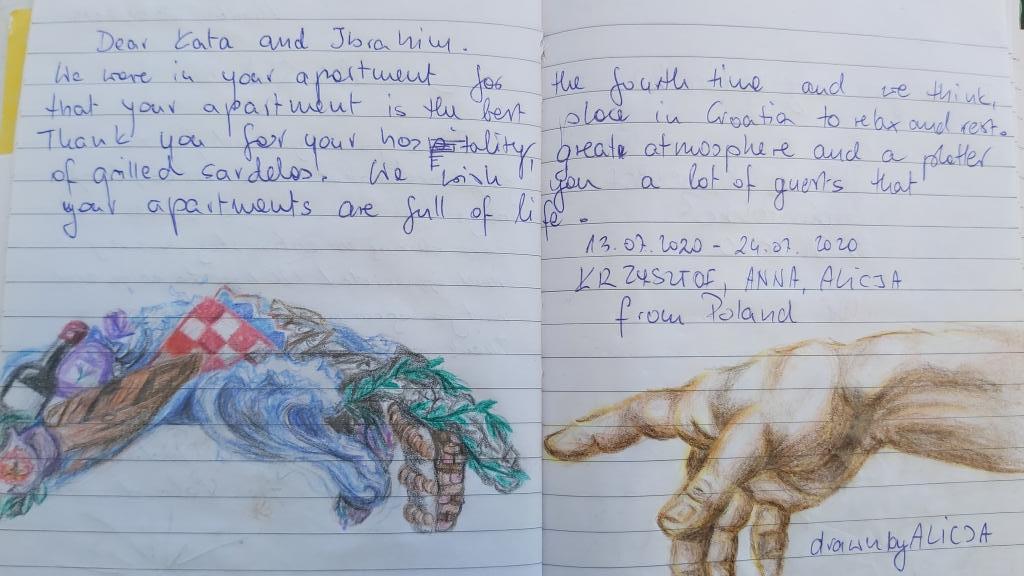 Dear Kata and Ibrahim.
We were in your apartment for the fourth time and we think,
that your apartment is the best place in Croatia to relax and rest.
Thank you for your hospitality, great atmosphere and a platter
of grilled sardelas. We wish you a lot of guests that
your apartments are full of life.
13.07.2020 - 24.07.2020
KRZYSZTOF, ANNA, ALICJA
from Poland
drawn by ALICJA